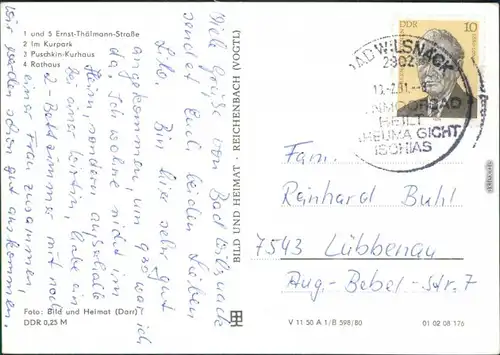 1 und 5 Ernst-Thälmann-Straße
2 Im Kurpark
3 Puschkin-Kurhaus
4 Rathaus
Viele Grüße von Bad Wilsnack
sendet Euch beiden Lieben
Lilo. Bin hier sehr gut
angekommen, um war ich
da. Ich wohne nicht im
Heim, sondern außerhalb
bei einer Wirtin, habe ein
2-Bettzimmer mit noch
einer Frau zusammen,
wir werden schon gut auskommen.
Foto: Bild und Heimat (Darr)
DDR 0,25 M
BILD UND HEIMAT · REICHENBACH (VOGTL)
DDR 10
BAD WILSNACK
2902
12.-2.81.-8
MOORBAD
HEILT
RHEUMA GICHT
ISCHIAS
Fam.
Reinhard Buhl
7543 Lübbenau
Aug.-Bebel-Str. 7
V 11·50 A 1/B 598/80
01 02 08 176